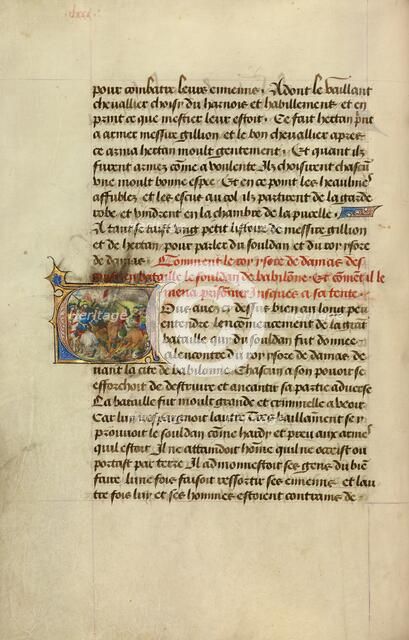 pour combatre leurs ennemis. Adont le vaillant
chevallier choisy du harnois et habillement et en
print ce que mestier leur estoit. Ce fait hertan print
a armer messire gillion et le bon chevallier apres
ce arma hertan moult gentement. Et quant ilz
furent armez come a voulente Ilz choisirent chascun
une moult bonne espee. Et en ce point les heaulmes
affublez et les escus au col ilz partirent de la garde
robe et vindrent en la chambre de la pucelle.
A tant se taist ung petit listoire de messire gillion
et de hertan pour parler du souldan et du roy ysore
de damas. Comment le roy ysore de damas des
en bataille le souldan de babilone. Et coment il le
mena prisonnier jusques a sa tente.
Heritage
Ous avez cy dessus bien au long peu
entendre lencomencement de la grant
bataille qui du souldan fut donnee
alencontre du roy ysore de damas de
vant la cite de babilonne. Chascun a son povoir se
efforchoit de destruire et aneantir sa partie adverse
La bataille fut moult grande et criminelle a veoir
Car lun nespargnoit lautre Tres vaillament se y
prouvoit le souldan come hardy et preu aux armes
quil estoit. Il ne attaindoit home quil ne occeist ou
portast par terre Il admonnestoit ses gens du bien
faire lune fois faisoit ressortir ses ennemis et lau
tre fois luy et ses hommes estoient contrains de